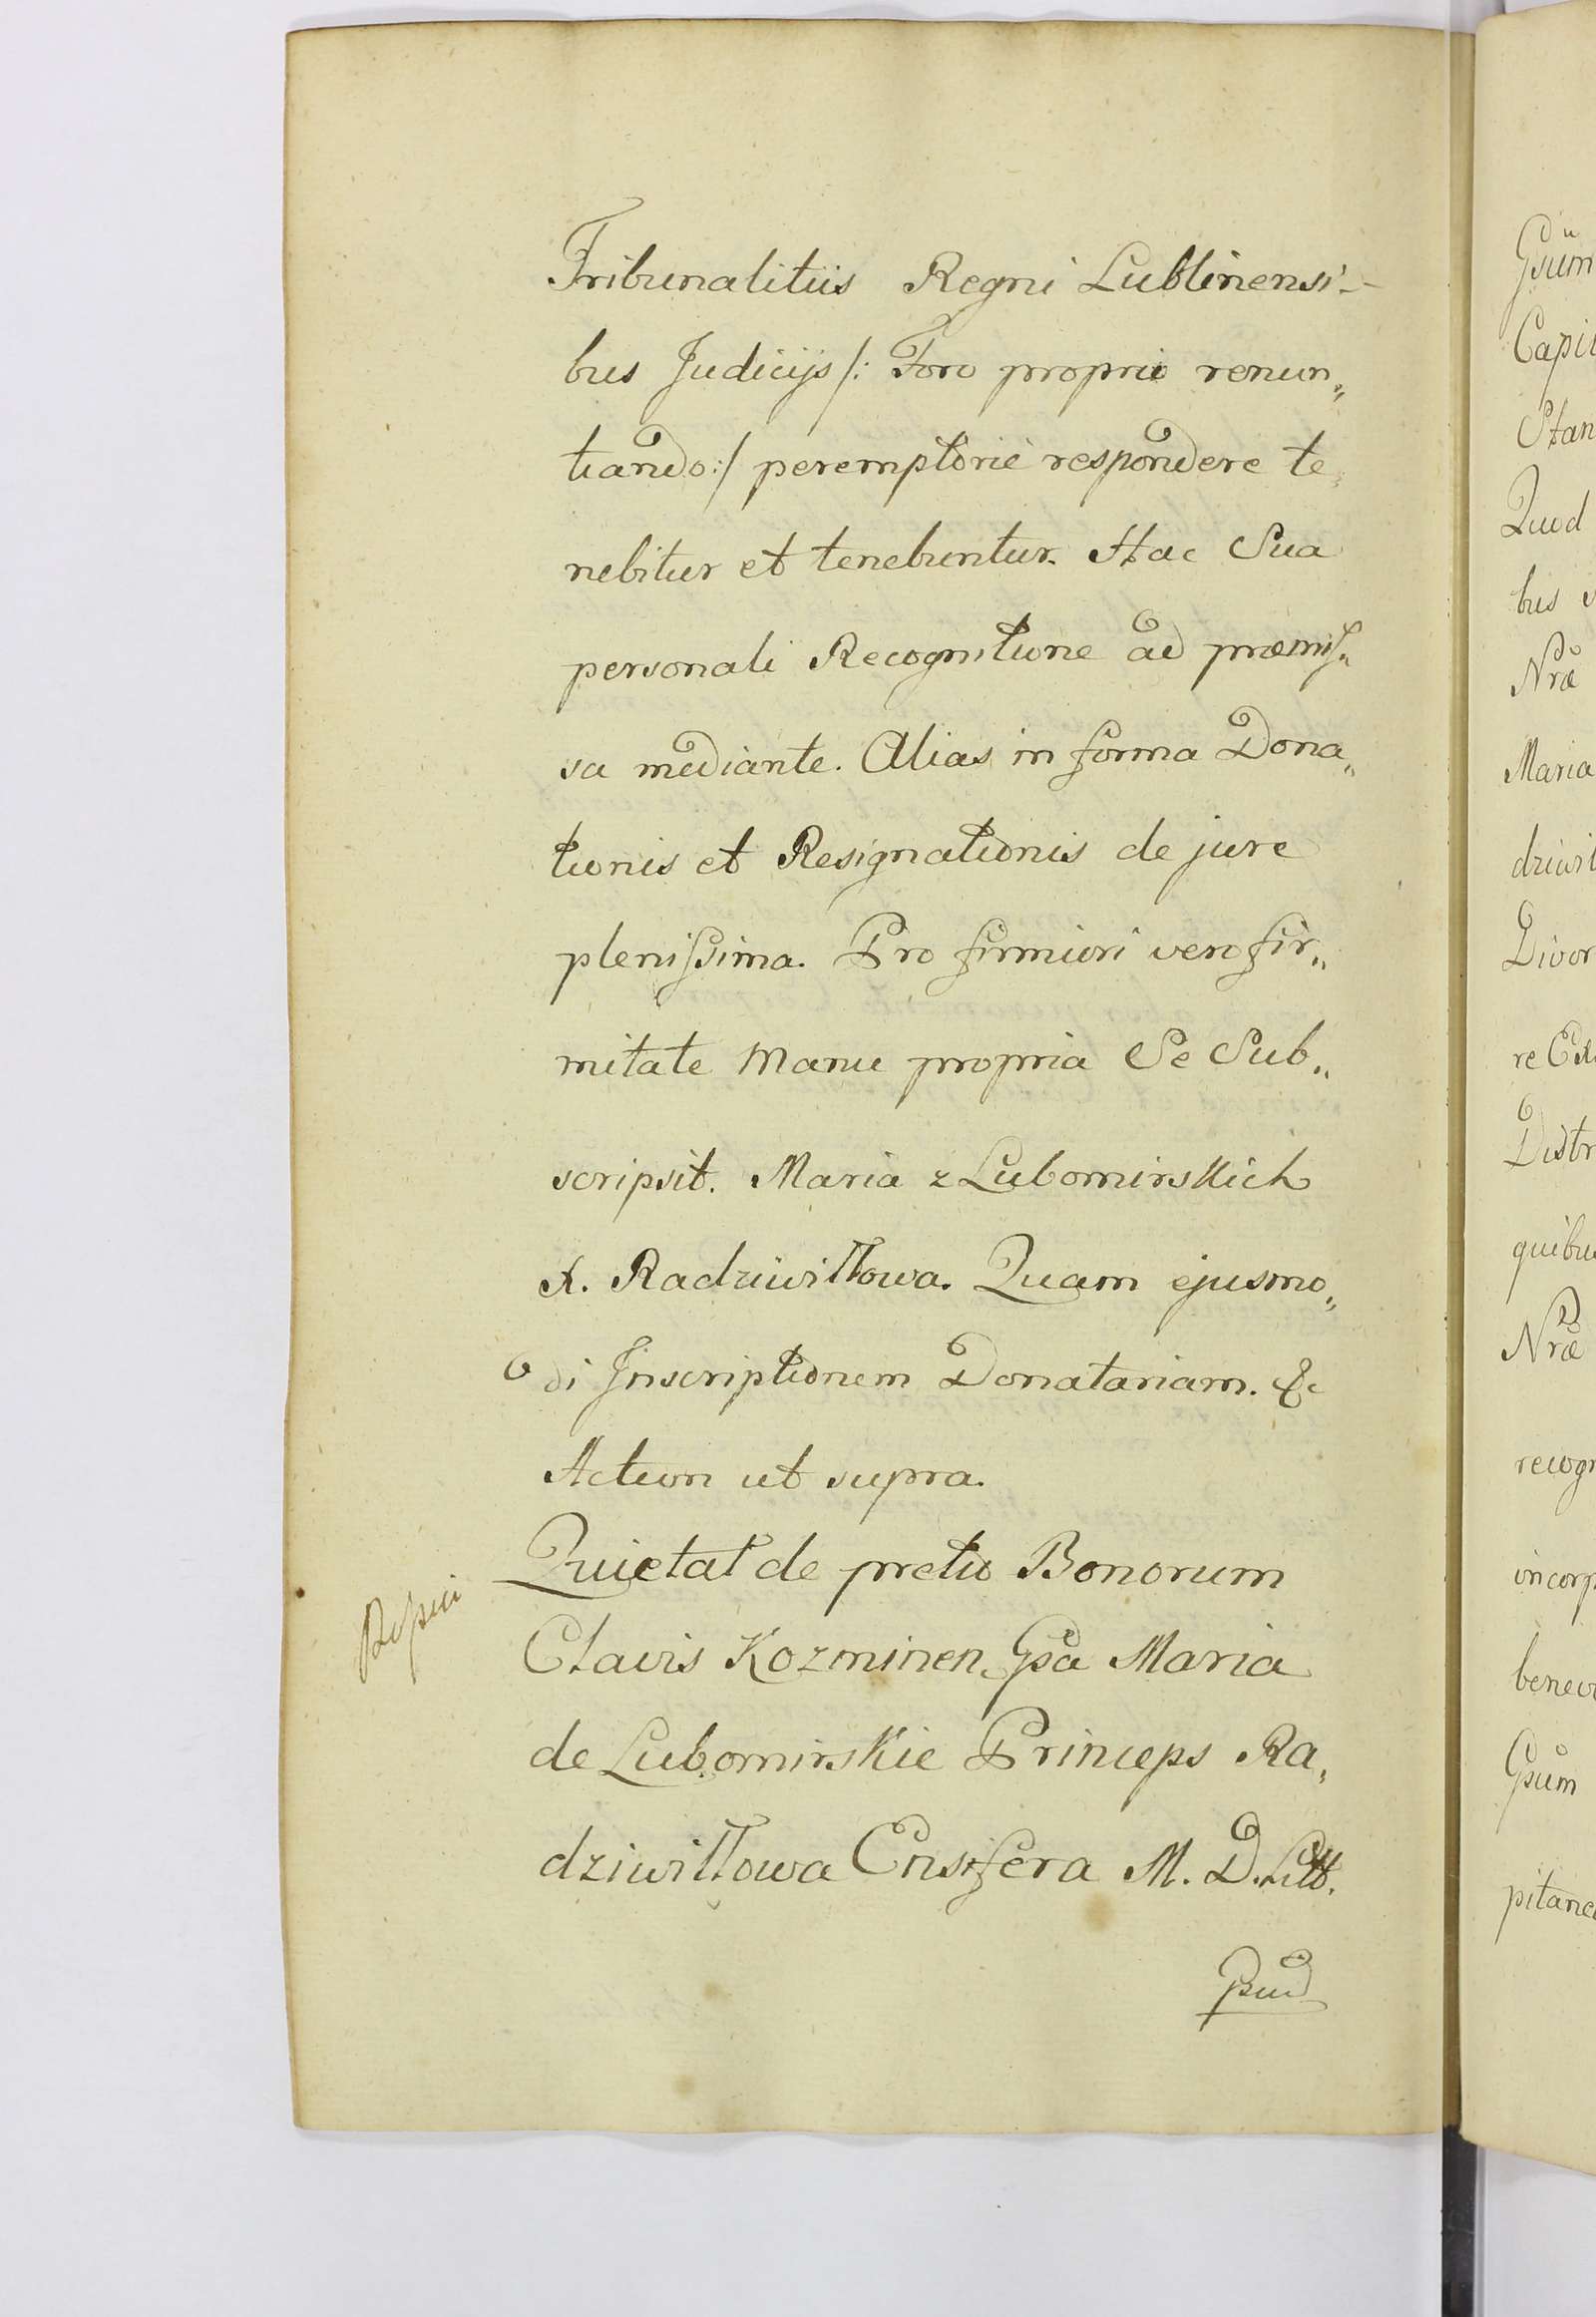 Tribunalitiis Regni Lublinensi-
bus Judicijs /: Foro proprio renun„
tiando :/ peremptorie respondere te„
nebitur et tenebuntur. Hac Sua
personali Recognitione ad præmis„
sa mediante. Alias in forma Dona„
tionis et Resignationis de jure
plenissima. Pro firmiori vero fir„
mitate Manu propria Se Sub„
scripsit. Maria z Lubomirskich
X. Radziwiłłowa. Quam ejusmo„
di Inscriptionem Donatariam. &c
Actum ut supra.
Quietat de pretio Bonorum
Clavis Kozminen Gsa Maria
de Lubomirskie Princeps Ra„
dziwiłłowa Ensifera M. D. Litt.
Gsum
Capit
Stan
Quod
bus
Nræ
Maria
dziwił
Divor
re
Distr
quibus
Nræ
recogn
incorp
benevo
Gsum
pitane